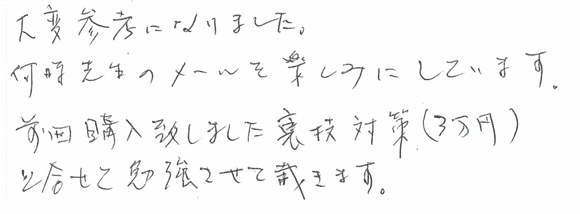 大変参考になりました。
何時先生のメールを楽しみにしています。
前回購入致しました裏技対策(3万円)
と合せて勉強させて戴きます。